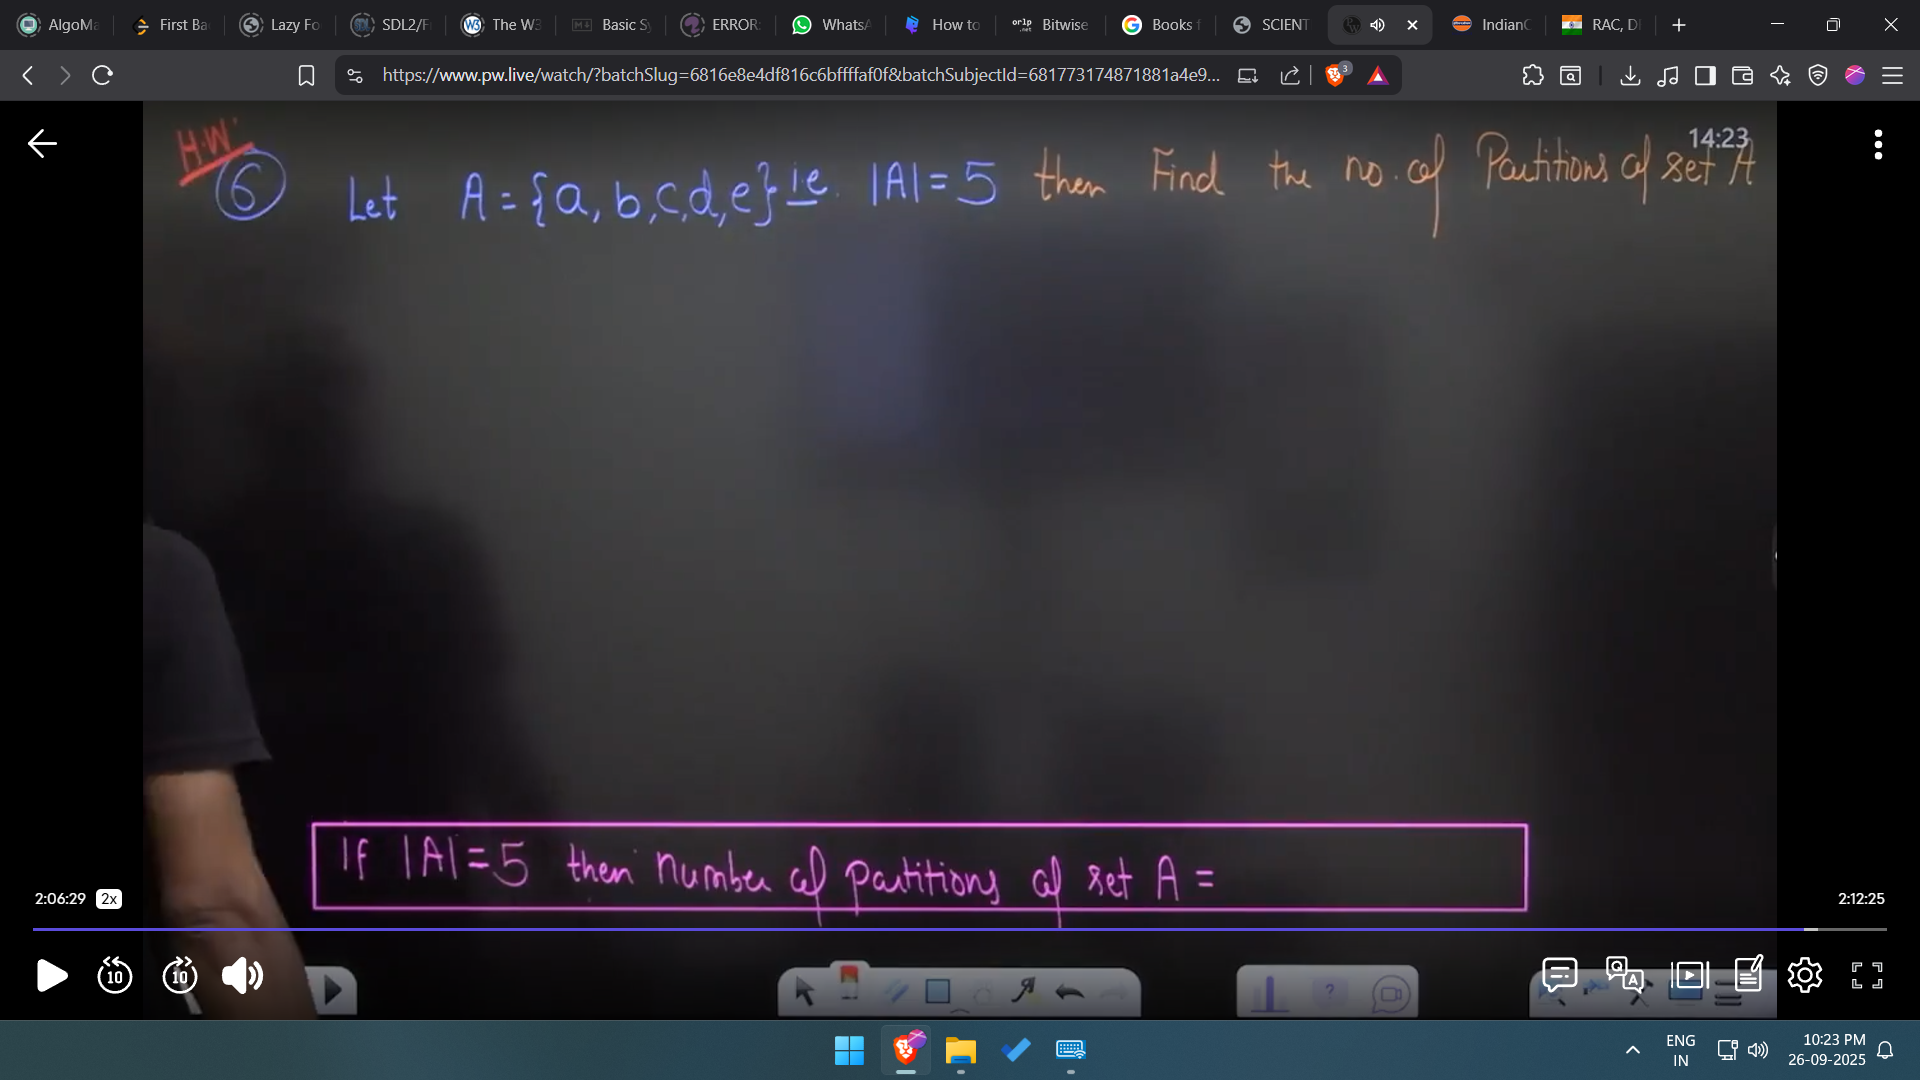 AlgoMa First Ba Lazy Fo SDL2/F The W3 Basic Sy ERROR: WhatsA How to Bitwise Books f SCIENT IndianO RAC, D
https://www.pw.live/watch/?batchSlug=6816e8e4df816c6bffffaf0f&batchSubjectId=681773174871881a4e9...
3
14:23
H.W.
6 Let A = {a, b, c, d, e} i.e. |A| = 5 then Find the no. of Partitions of set A
If |A| = 5 then number of partitions of set A =
2:06:29 2x 2:12:25
10 10
ENG 10:23 PM
IN 26-09-2025